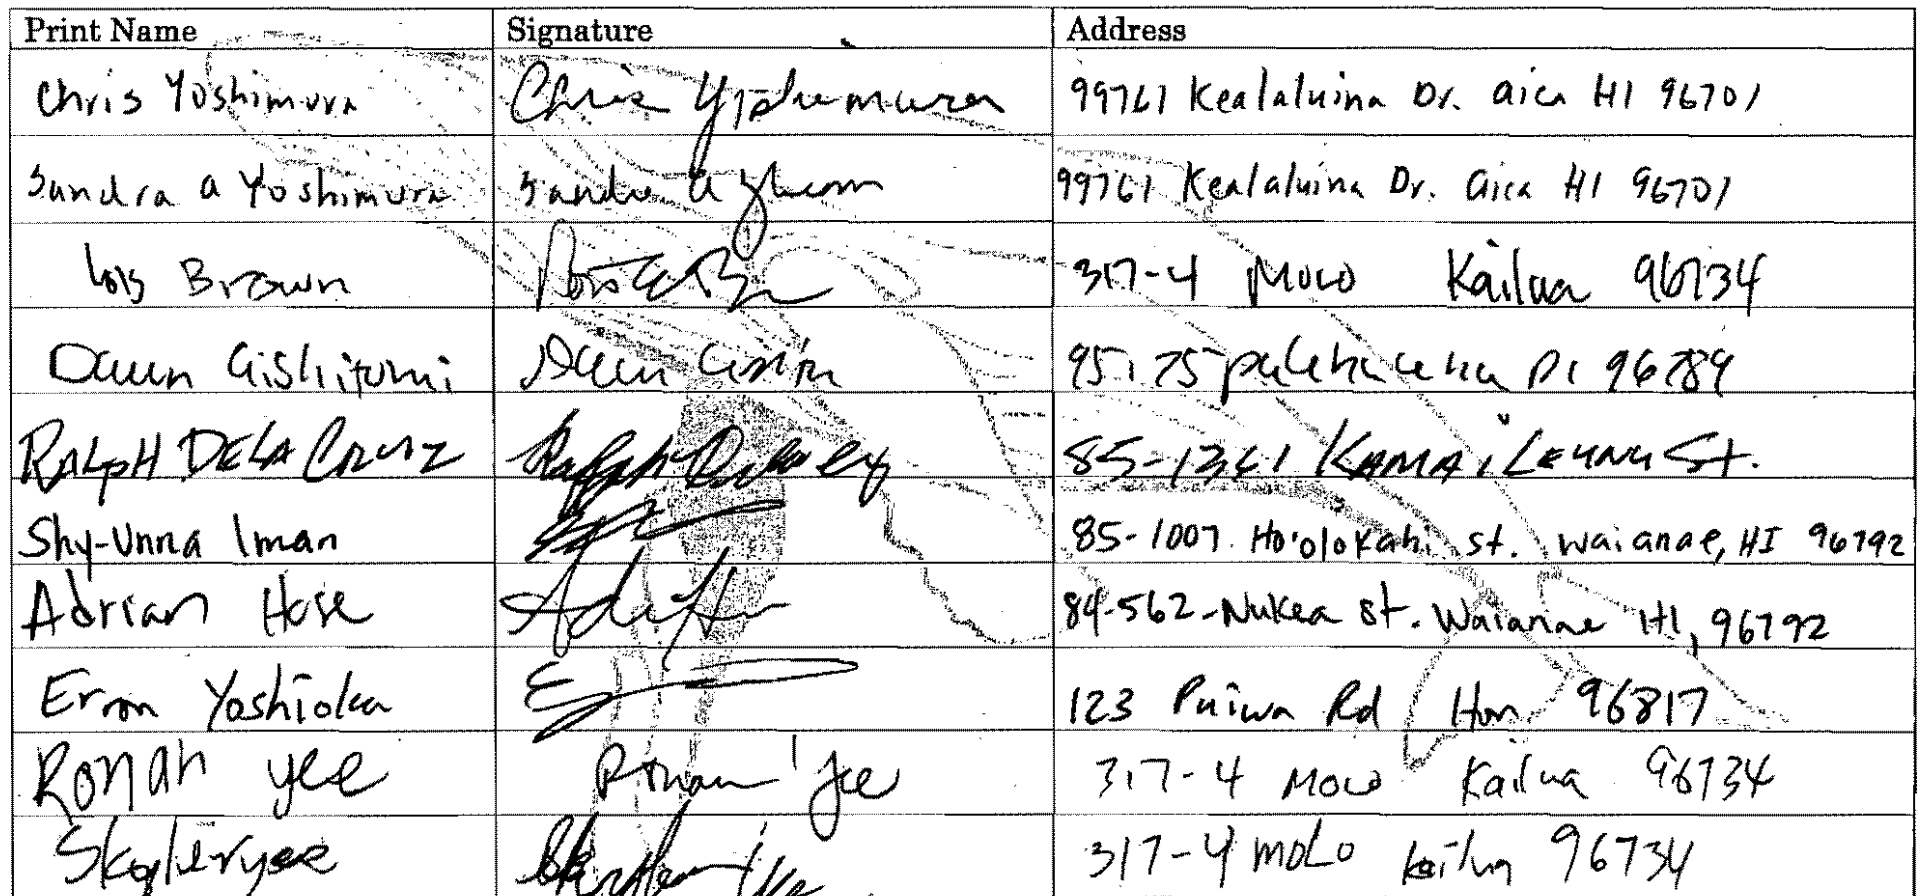 Print Name Signature Address
Chris Yoshimura Chris Yoshimura 99761 Kealaluina Dr. aiea HI 96701
Sandra a Yoshimura Sandra a 99761 Kealaluina Dr. aiea HI 96701
Lois Brown 317-4 Molo Kailua 96734
Dawn Dawn 96789
RALPH DELA CRUZ Ralph 85-1361 St.
Shy-Unna Iman 85-1007 Ho'olokahi st. waianae, HI 96792
Adrian Hose 84-562-Nukea st. Waianae HI, 96792
Erron Yoshioka 123 Puiwa Rd Hon 96817
Ronan yee Ronan Yee 317-4 Molo Kailua 96734
Skyleryee 317-4 moLo Kailua 96734